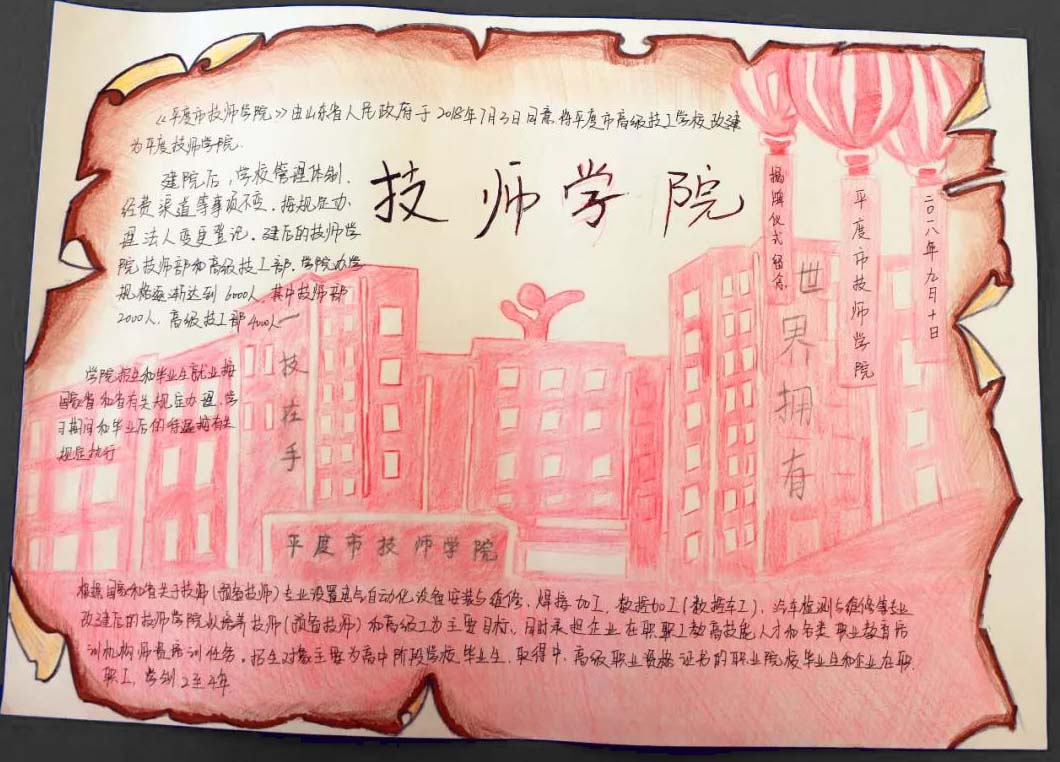 《平度市技师学院》由山东省人民政府于2018年7月3日同意将平度市高级技工学校改建
为平度技师学院.
技师学院
建院后,学校管理体制、
经费渠道等事项不变.按规定办
理法人变更登记.建后的技师学
院技师部和高级技工部.学院办学
规格逐渐达到6000人.其中技师部
2000人.高级技工部4000人
学院招生和毕业生就业按
国家省和省有关规定办理.学
习期间和毕业后的待遇按有关
规定执行
一技在手
世界拥有
揭牌仪式留念
平度市技师学院
二〇一八年九月十日
平度市技师学院
根据国家和省关于技师(预备技师)专业设置电气自动化设备安装与维修、焊接加工、数控加工(数控车工)、汽车检测与维修等专业
改建后的技师学院以培养技师(预备技师)和高级工为主要目标,同时承担企业在职职工教高技能人才和各类职业教育培
训机构师资培训任务。招生对象主要为高中阶段学校毕业生、取得中、高级职业资格证书的职业院校毕业生和企业在职
职工,学制2至4年